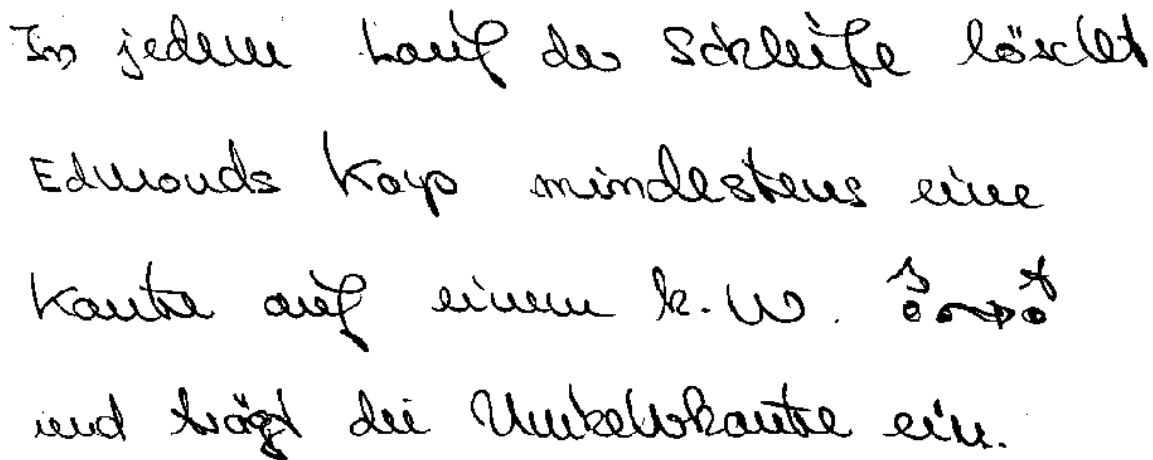 In jedem Lauf der Schleife löscht
Edmonds Karp mindestens eine
Kante auf einem k. W. s t
und trägt die Umkehrkante ein.